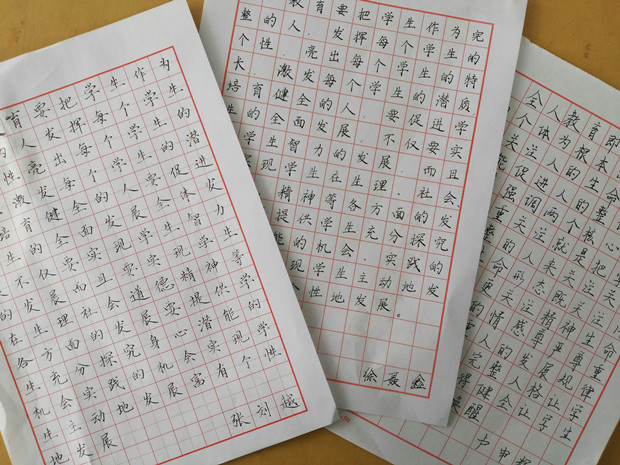 育要把学生作为
人发挥每个学生
性亮出每个学生的
激发每个学生的潜
培育健全的人要促进
生的全面发展全体发
不仅要实现学生智力
的发展而且要实现学生
在生理社会道德精神等
各方面的发展要提供学
生充分探究身心潜能的
机会实践的机会实现学
生主动地发展富有个性
地发展
张刻越
教育要把学生作为完
整的人.发挥每个学生的
个性 亮出每个学生的特
长 激发每个学生的潜质
培育健全的人 要促进
生的全面发展.不仅要实
学生智力的发展 而且
实现学生在生理.社会
精神等各方面的发
提供学生充分探究
能的机会.实践的
现学生主动地发
性地发展。
全人教育即
个体为根本出
关注人的生命
能促进人的整
强调两个核心
重关注就是把
的人来关注
命的态既关注
更关注精神生命
的情感尊严尊重
人的发展规律
完整人格让学生
得健全让学生
醒